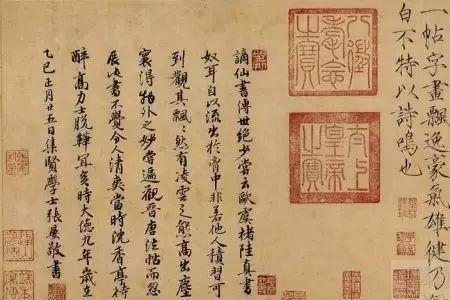 一帖字畫飄逸豪氣雄健乃
白不特以詩鳴也
八徵耄念之寶
太上皇帝之寶
謫仙書傳世絶少嘗云歐虞褚陸真書
奴耳自以流出於胷中非若他人積習可
到觀其飄〻然有凌雲之態高出塵
寰得物外之妙嘗遍觀晉唐法帖而忽
展此書不覺令人清爽當時沈香亭待
醉高力士脱鞾宜矣時大德九年歲在
乙巳正月廿五日集賢學士張晏敬書